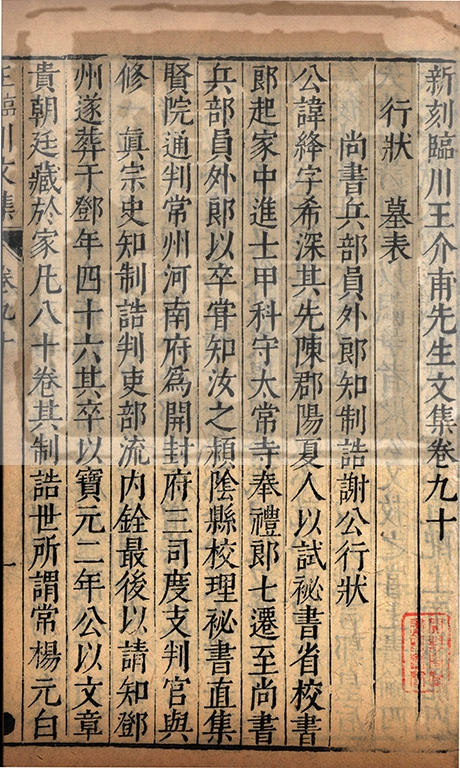 新刻臨川王介甫先生文集卷九十
行狀 墓表
尚書兵部員外郎知制誥謝公行狀
公諱絳字希深其先陳郡陽夏人以試祕書省校書
郎起家中進士甲科守太常寺奉禮郎七遷至尚書
兵部員外郎以卒甞知汝之潁陰縣校理祕書直集
賢院通判常州河南府爲開封府三司度支判官與
修 真宗史知制誥判吏部流內銓最後以請知鄧
州遂葬于鄧年四十六其卒以寶元二年公以文章
貴朝廷藏於家凡八十卷其制誥世所謂常楊元白
王臨川文集 卷九十 一